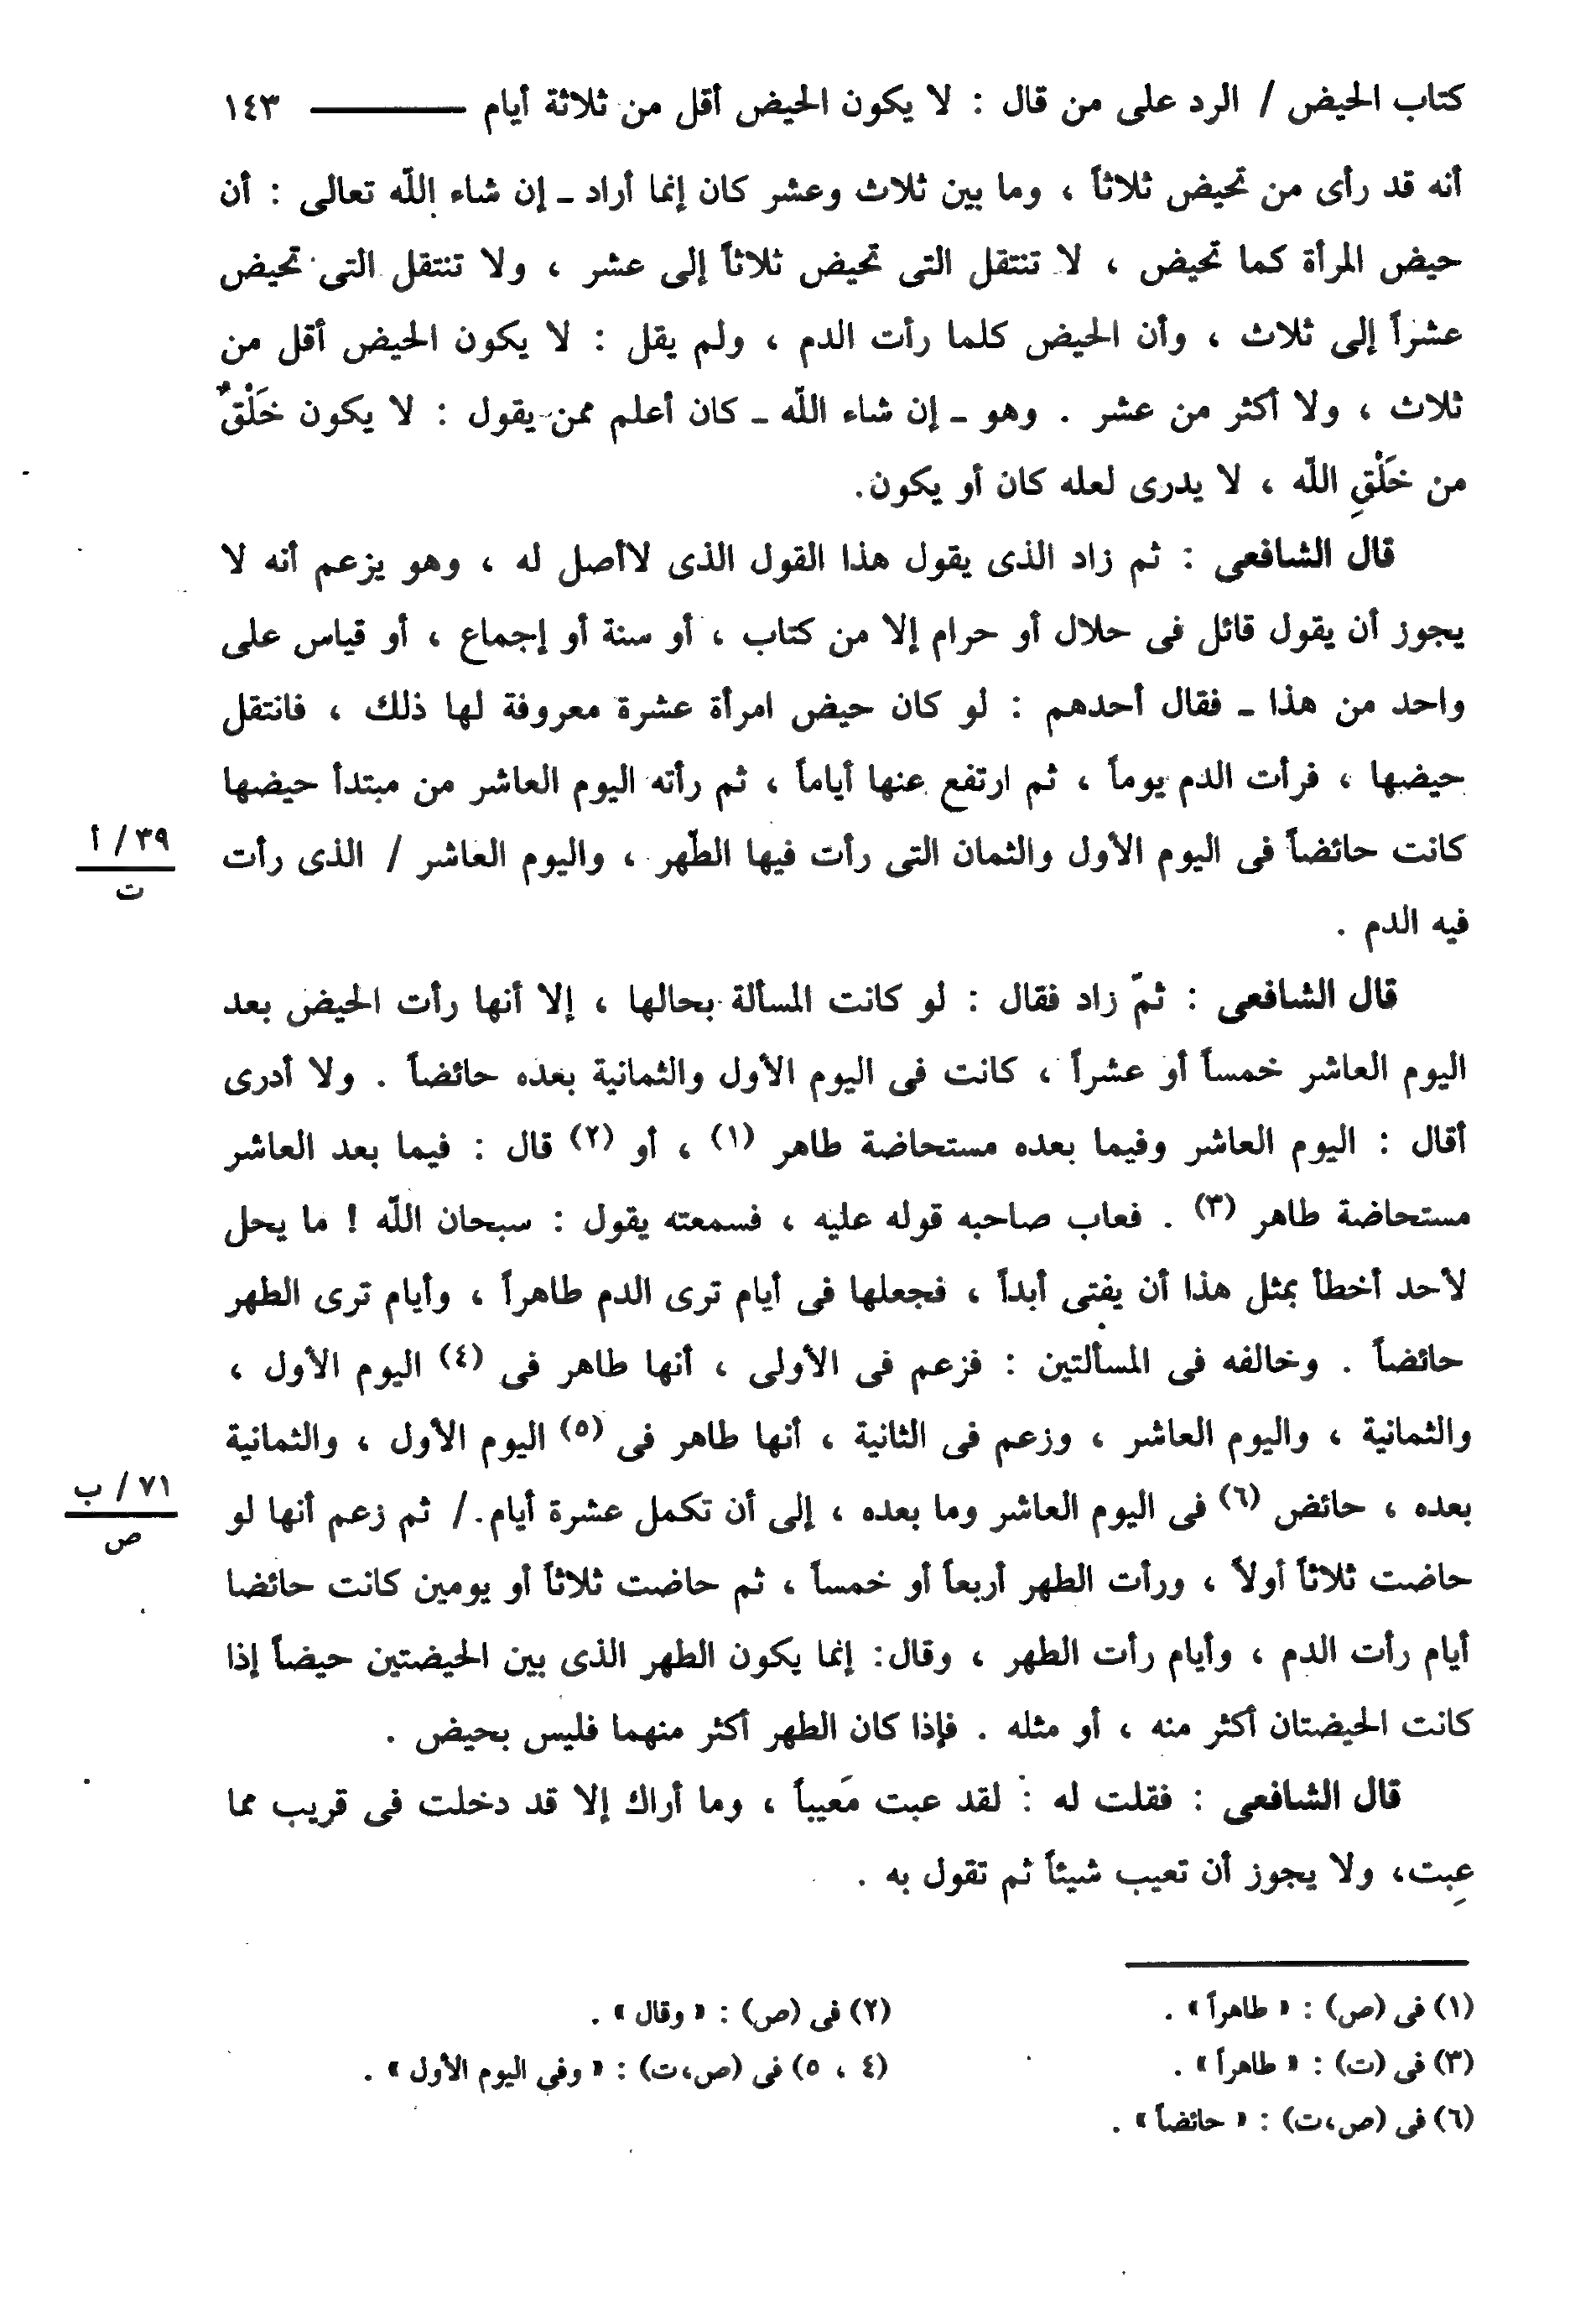 كتاب الحيض / الرد على من قال : لا يكون الحيض أقل من ثلاثة أيام ــــــــــ ١٤٣
أنه قد رأى من تحيض ثلاثاً ، وما بين ثلاث وعشر كان إنما أراد ـ إن شاء الله تعالى : أن
حيض المرأة كما تحيض ، لا تنتقل التى تحيض ثلاثاً إلى عشر ، ولا تنتقل التى تحيض
عشراً إلى ثلاث ، وأن الحيض كلما رأت الدم ، ولم يقل : لا يكون الحيض أقل من
ثلاث ، ولا أكثر من عشر . وهو ـ إن شاء اللّه ـ كان أعلم ممن يقول : لا يكون خَلْقٌ
من خَلْقِ اللّه ، لا يدرى لعله كان أو يكون.
قال الشافعى : ثم زاد الذى يقول هذا القول الذى لاأصل له ، وهو يزعم أنه لا
يجوز أن يقول قائل فى حلال أو حرام إلا من كتاب ، أو سنة أو إجماع ، أو قياس على
واحد من هذا ـ فقال أحدهم : لو كان حيض امرأة عشرة معروفة لها ذلك ، فانتقل
حيضها ، فرأت الدم يوماً ، ثم ارتفع عنها أياماً ، ثم رأته اليوم العاشر من مبتدأ حيضها
كانت حائضاً فى اليوم الأول والثمان التى رأت فيها الطّهر ، واليوم العاشر / الذى رأت
٣٩ / أ
ت
فيه الدم .
قال الشافعى : ثمّ زاد فقال : لو كانت المسألة بحالها ، إلا أنها رأت الحيض بعد
اليوم العاشر خمساً أو عشراً ، كانت فى اليوم الأول والثمانية بعده حائضاً . ولا أدرى
أقال : اليوم العاشر وفيما بعده مستحاضة طاهر (١) ، أو (٢) قال : فيما بعد العاشر
مستحاضة طاهر (٣) . فعاب صاحبه قوله عليه ، فسمعته يقول : سبحان اللّه ! ما يحل
لأحد أخطأ بمثل هذا أن يفتى أبداً ، فجعلها فى أيام ترى الدم طاهراً ، وأيام ترى الطهر
حائضاً . وخالفه فى المسألتين : فزعم فى الأولى ، أنها طاهر فى (٤) اليوم الأول ،
والثمانية ، واليوم العاشر ، وزعم فى الثانية ، أنها طاهر فى (٥) اليوم الأول ، والثمانية
بعده ، حائض (٦) فى اليوم العاشر وما بعده ، إلى أن تكمل عشرة أيام. / ثم زعم أنها لو
٧١ / ب
ص
حاضت ثلاثاً أولاً ، ورأت الطهر أربعاً أو خمساً ، ثم حاضت ثلاثاً أو يومين كانت حائضا
أيام رأت الدم ، وأيام رأت الطهر ، وقال: إنما يكون الطهر الذى بين الحيضتين حيضاً إذا
كانت الحيضتان أكثر منه ، أو مثله . فإذا كان الطهر أكثر منهما فليس بحيض .
قال الشافعى : فقلت له : لقد عبت مَعيباً ، وما أراك إلا قد دخلت فى قريب مما
عِبت، ولا يجوز أن تعيب شيئاً ثم تقول به .
(١) فى (ص) : « طاهراً » .
(٢) فى (ص) : « وقال » .
(٣) فى (ت) : « طاهراً » .
(٤ ، ٥) فى (ص،ت) : « وفى اليوم الأول » .
(٦) فى (ص،ت) : « حائضاً » .